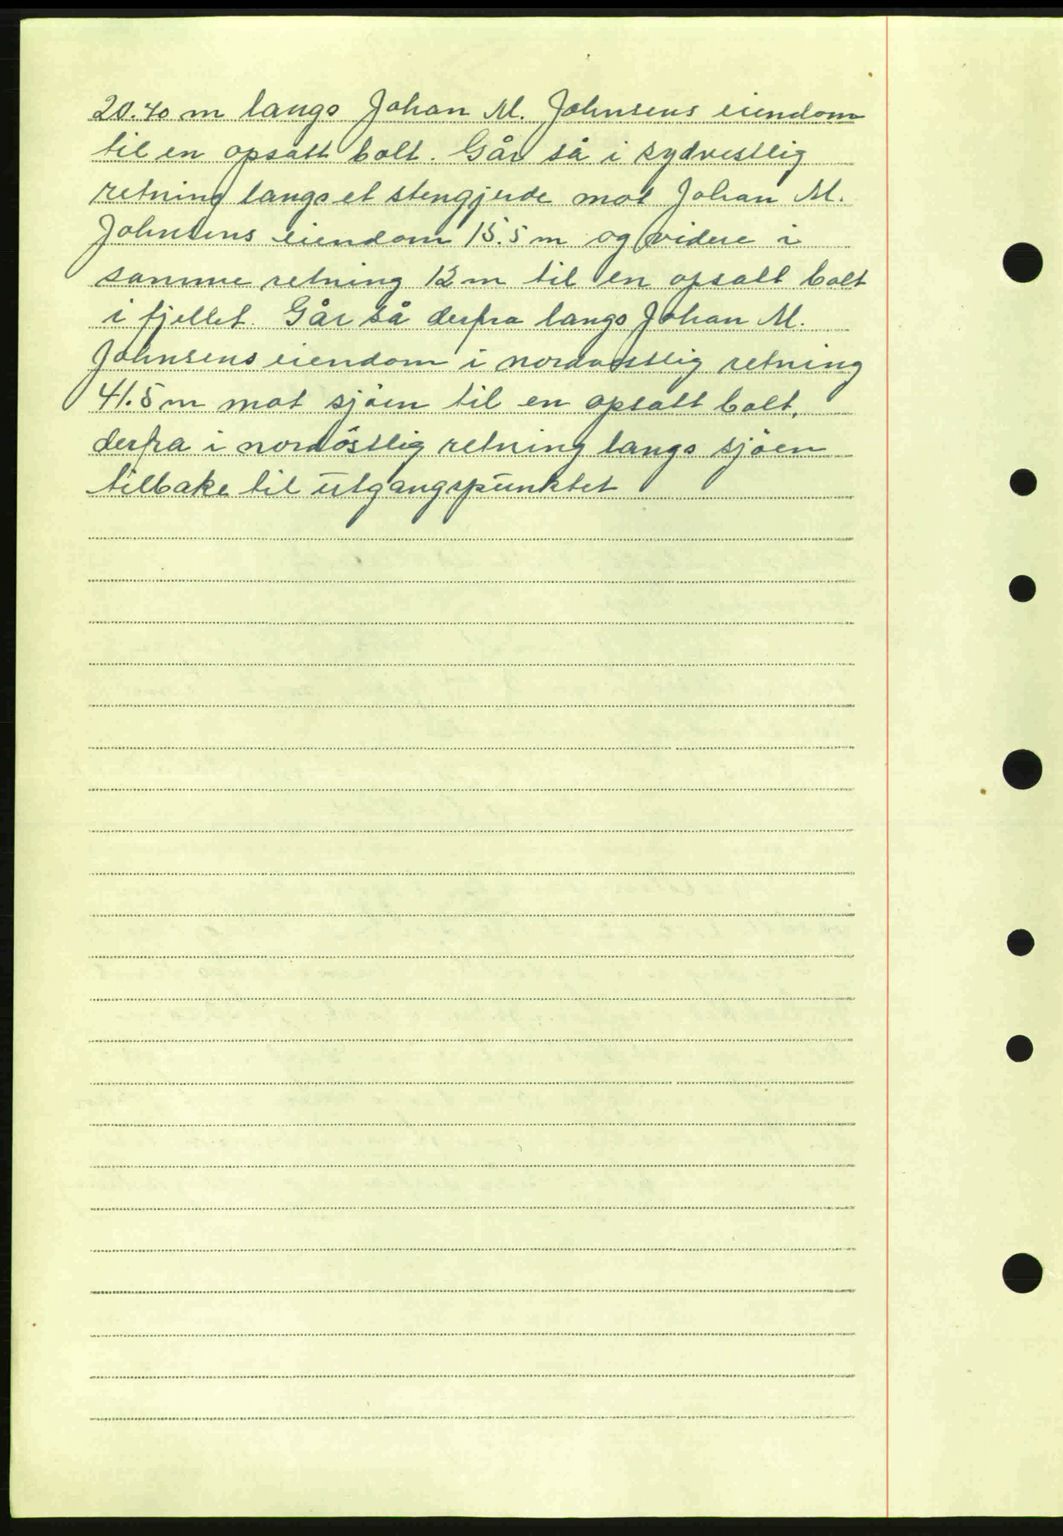 20.40 m langs Johan M. Johnsens eiendom
til en opsatt bolt. Går så i sydvestlig
retning langs et stengjerde mot Johan M.
Johnsens eiendom 15.5 m og videre i
samme retning 12 m til en opsatt bolt
i fjellet. Går så derfra langs Johan M.
Johnsens eiendom i nordvestlig retning
41.5 m mot sjøen til en opsatt bolt,
derfra i nordöstlig retning langs sjøen
tilbake til utgangspunktet